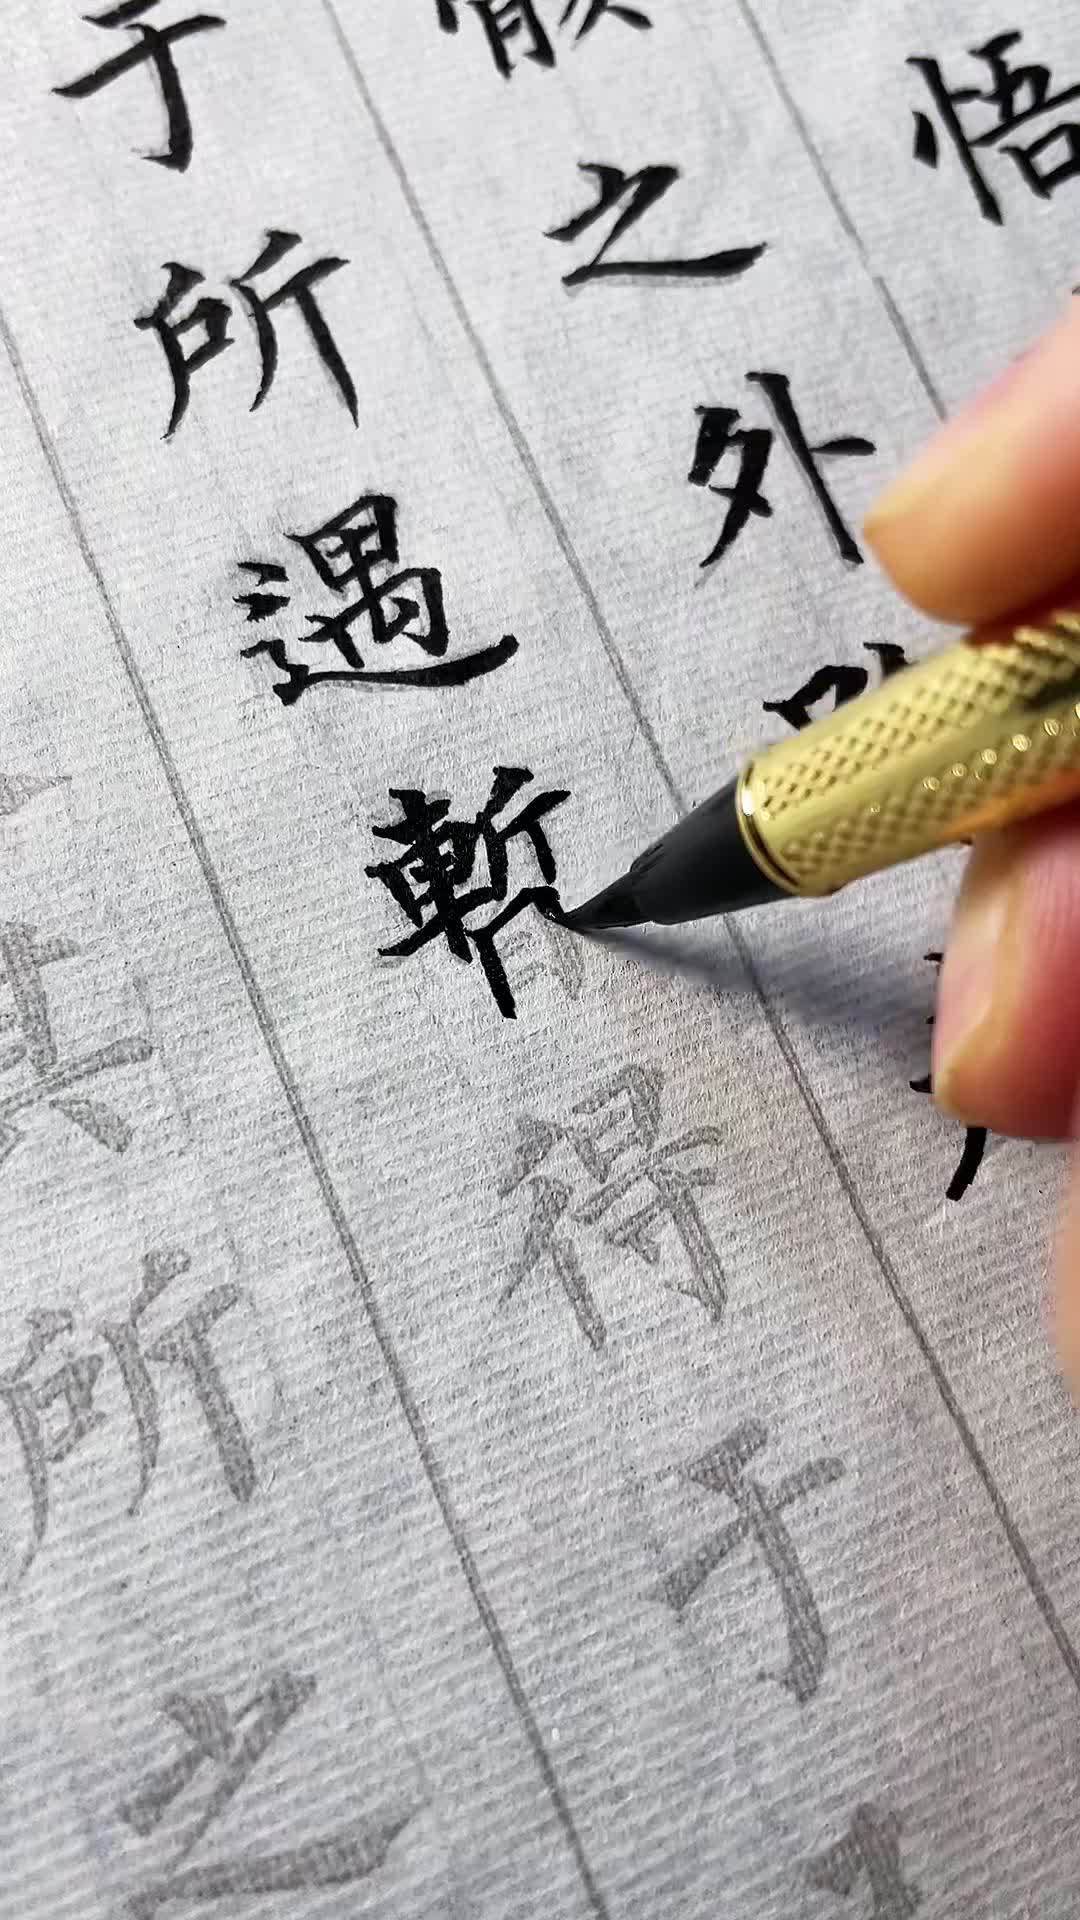 悟
骸之外
于所遇暫得于
其所之